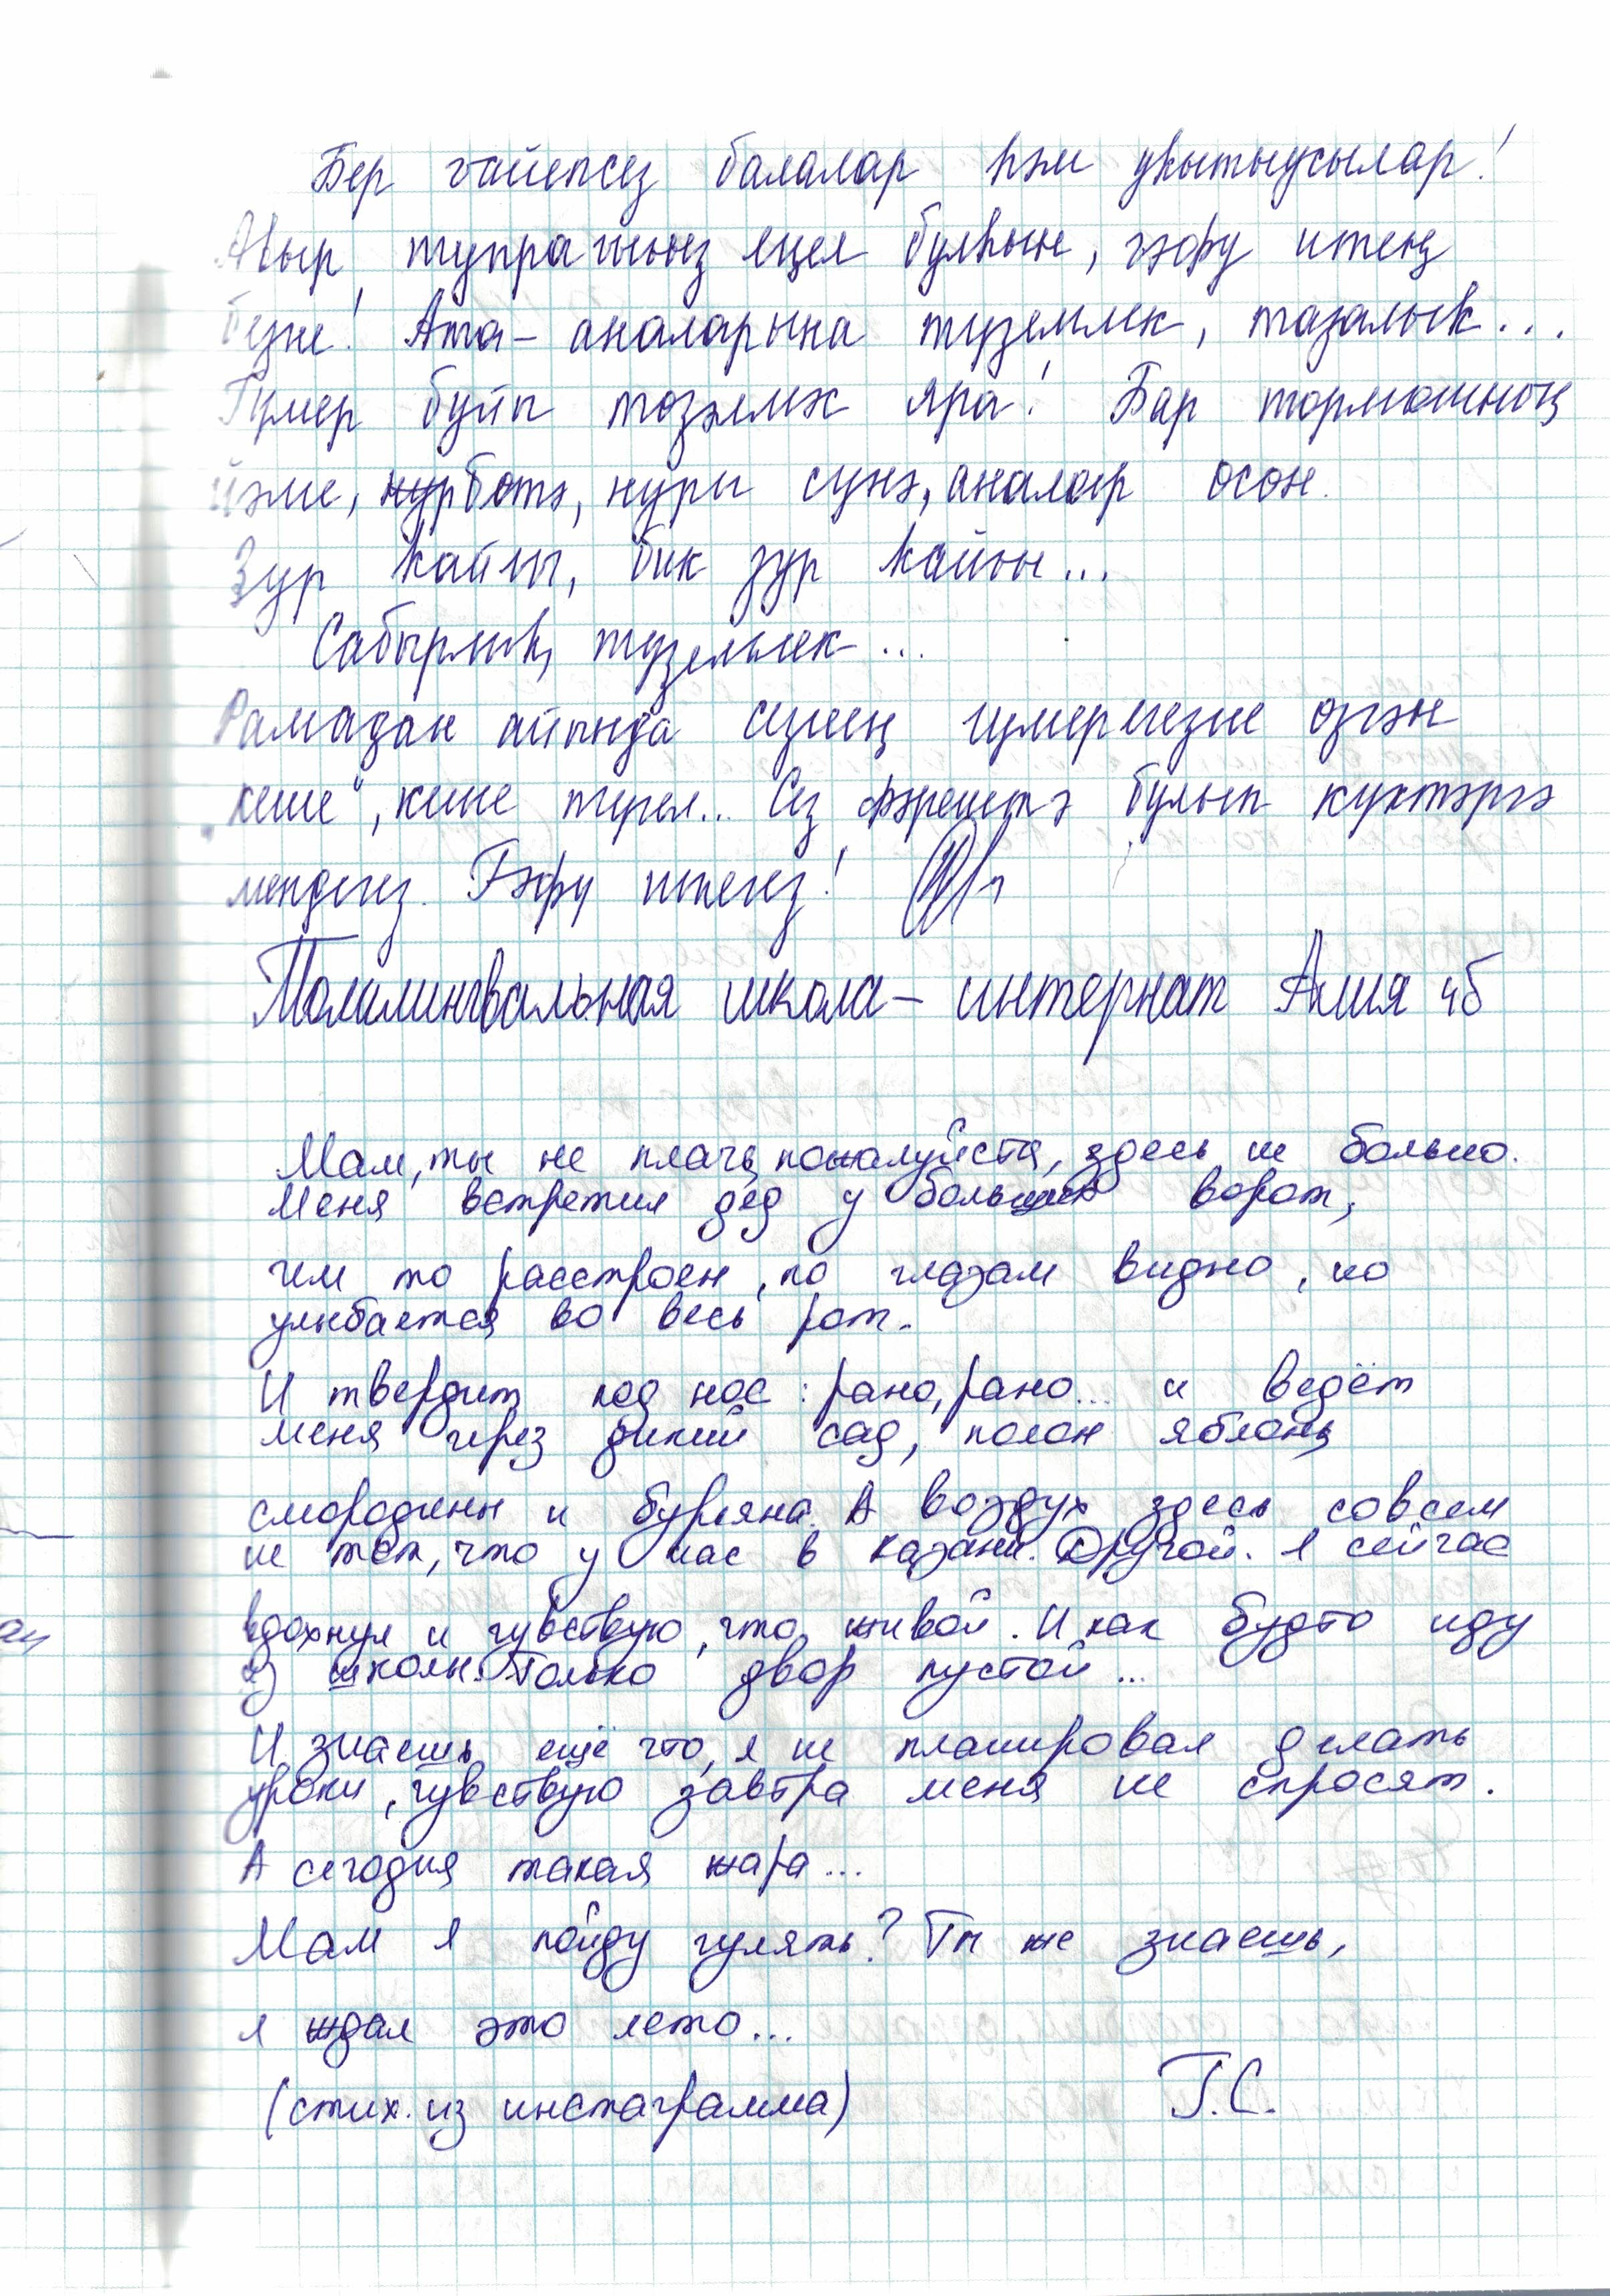 Бер гайепсез балалар һэм укытыусылар!
Авыр тупрагыгыз еңел булһын, гэфу итең
безне! Ата-аналарына түземлек, тазалык...
Гүмер буйы тозэлмэс яра! Бар тормошноң
йэме, ботэ, нуры сүнэ, аналар осон.
Зур кайгы, бик зур кайгы...
Сабырлык, түземлек...
Рамадан айында сезнең гумерегезне озгэн
"кеше", кеше түгел.. Сез фэрештэ булып күктэргэ
мендегез. Гэфу итегез!
Полилингвальная школа-интернат Алия 4б
Мам, ты не плачь, пожалуйста, здесь не больно.
Меня встретил дед у больших ворот,
чем то расстроен, по глазам видно, но
улыбается во весь рот.
И твердит под нос: рано, рано... и ведёт
меня через дикий сад, полон яблонь,
смородины и бурьяна. А воздух здесь совсем
не тот, что у нас в казани. Другой. я сейчас
вдохнул и чувствую, что живой. И как будто иду
из школы. Только двор пустой...
И знаешь ещё что, я не планировал делать
уроки, чувствую завтра меня не спросят.
А сегодня такая жара...
Мам я пойду гулять? Ты же знаешь,
я ждал это лето...
(стих. из инстаграмма) Г.С.